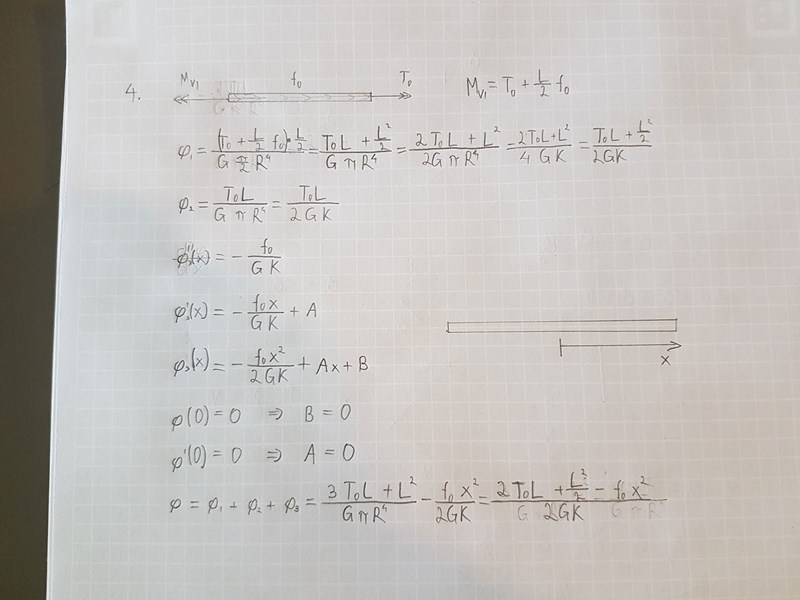 4. M_{V1} f_0 T_0 M_{V1} = T_0 + \frac{L}{2} f_0
φ_1 = \frac{(T_0 + \frac{L}{2} f_0) \cdot \frac{L}{2}}{G \frac{π}{2} R^4} = \frac{T_0 L + \frac{L^2}{2}}{G π R^4} = \frac{2 T_0 L + L^2}{2 G π R^4} = \frac{2 T_0 L + L^2}{4 G K} = \frac{T_0 L + \frac{L^2}{2}}{2 G K}
φ_2 = \frac{T_0 L}{G π R^4} = \frac{T_0 L}{2 G K}
φ_3''(x) = - \frac{f_0}{G K}
φ_3'(x) = - \frac{f_0 x}{G K} + A
φ_3(x) = - \frac{f_0 x^2}{2 G K} + A x + B
x
φ(0) = 0 ⇒ B = 0
φ'(0) = 0 ⇒ A = 0
φ = φ_1 + φ_2 + φ_3 = \frac{3 T_0 L + L^2}{G π R^4} - \frac{f_0 x^2}{2 G K} = \frac{2 T_0 L + \frac{L^2}{2} - f_0 x^2}{2 G K}